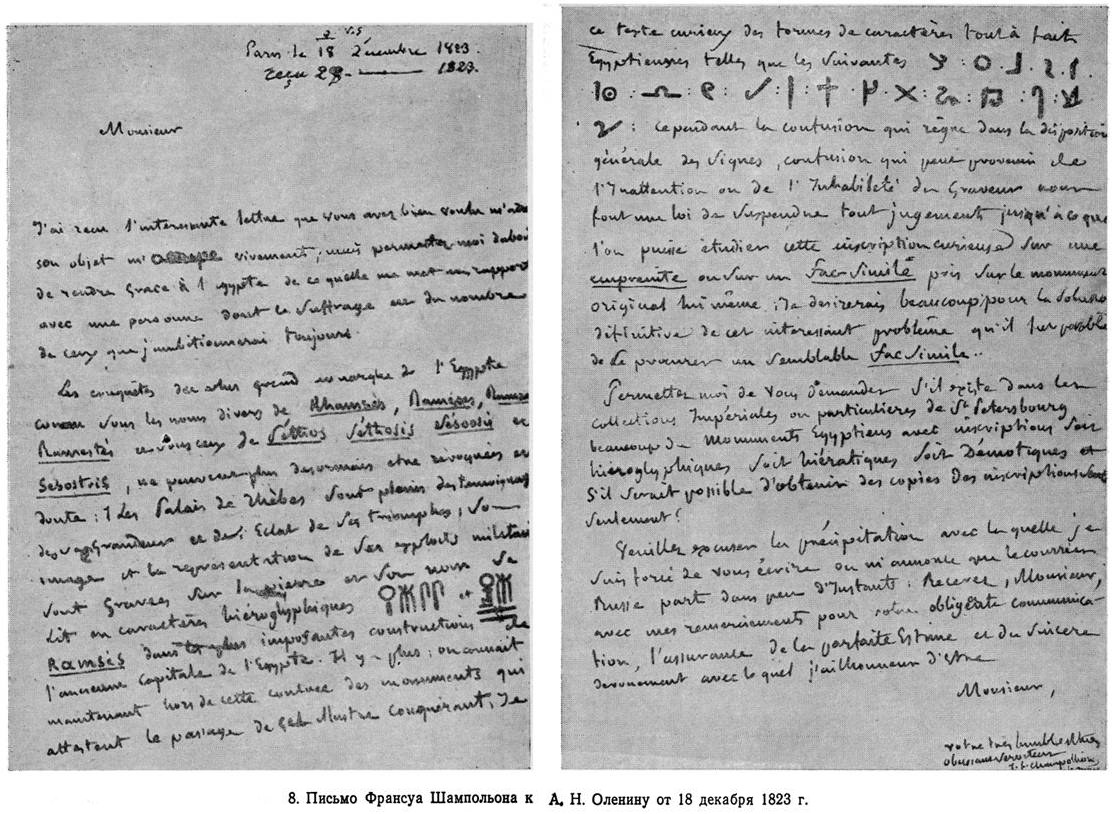 Paris le 18 Décembre 1823.
reçu 1823.
Monsieur
J'ai reçu l'intéressante lettre que vous avez bien voulu m'
son objet m'a vivement; mais permettez-moi d'abord
de rendre grace à l'Egypte de ce qu'elle me met en rapport
avec une personne dont le suffrage est du nombre
de ceux que j'ambitionnerai toujours.
Les conquêtes du plus grand monarque de l'Egypte
connu sous les noms divers de Rhamsès, Ramésès,
et sous ceux de Séthos Séthosis Sésoosis et
Sesostris, ne peuvent plus desormais etre révoquées en
doute: Les Palais de Thèbes sont pleins des
de sa Grandeur et de l'Eclat de ses triomphes, son
image et la représentation de ses exploits
sont Gravées sur la pierre et son nom se
lit en caractères hiéroglyphiques et
Ramsès dans les plus imposantes constructions de
l'ancienne capitale de l'Egypte. Il y a plus: on connait
maintenant hors de cette contrée des monuments qui
attestent le passage de cet Illustre Conquérant; Je
ce texte curieux des formes de caractères tout à fait
Egyptiennes telles que les suivantes
: Cependant la confusion qui règne dans la
générale des signes, confusion qui peut provenir de
l'Inattention ou de l'Inhabileté du Graveur nous
font une loi de suspendre tout jugement jusqu'à ce que
l'on puisse étudier cette inscription curieuse sur une
empreinte ou sur un facsimilé pris sur le monument
original lui même; Je desirerais beaucoup, pour la solution
définitive de cet intéressant problême qu'il fut possible
de se procurer un semblable facsimile..
Permettez moi de vous demander s'il existe dans les
collections Impériales ou particulieres de St Petersbourg
beaucoup de Monuments Egyptiens avec inscriptions soit
hiéroglyphiques soit hiératiques soit Démotiques et
s'il serait possible d'obtenir des copies des inscriptions
seulement?
Veuillez excuser la précipitation avec laquelle je
suis forcé de vous écrire on m'annonce que le courrier
Russe part dans peu d'Instants: Recevez, Monsieur,
avec mes remerciements pour votre obligeante communica-
tion, l'assurance de la parfaite Estime et du sincère
devouement avec lequel j'ai l'honneur d'etre
Monsieur,
votre très humble et très
obeissant serviteur
J. f. champollion
8. Письмо Франсуа Шампольона к А. Н. Оленину от 18 декабря 1823 г.